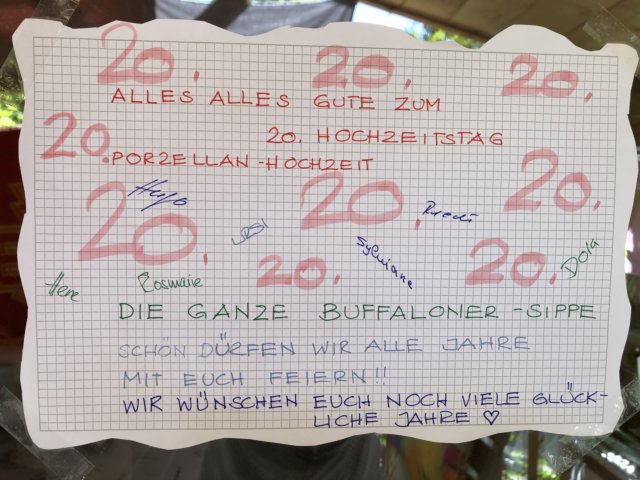 20. 20. 20.
ALLES ALLES GUTE ZUM
20. 20. HOCHZEITSTAG
PORZELLAN-HOCHZEIT
20. 20. 20.
Hugo Ruedi
URSI Sylviane Dora
Rosmarie 20. 20.
DIE GANZE BUFFALONER-SIPPE
SCHÖN DÜRFEN WIR ALLE JAHRE
MIT EUCH FEIERN!!
WIR WÜNSCHEN EUCH NOCH VIELE GLÜCK-
LICHE JAHRE ♡